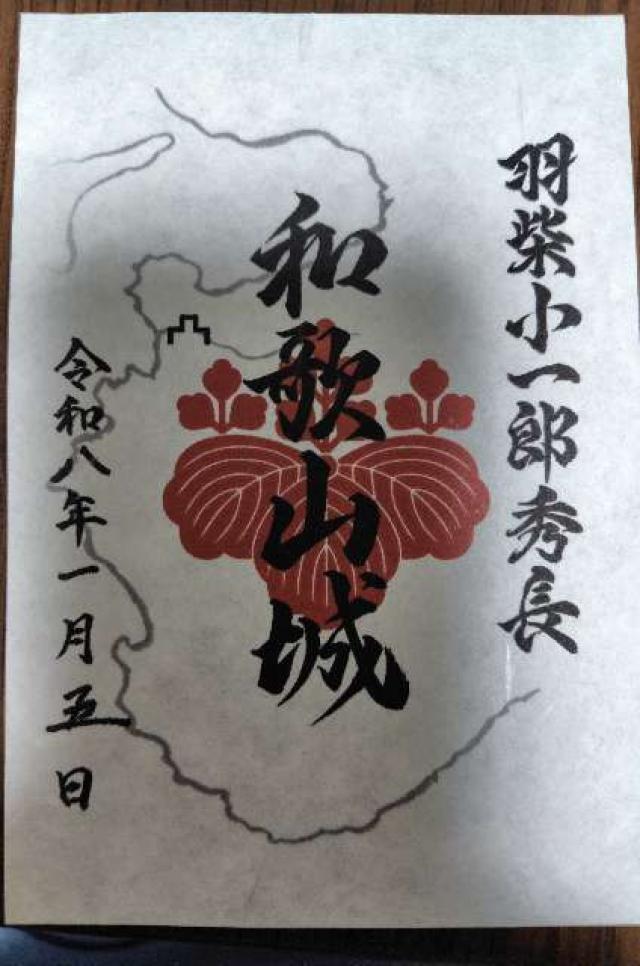 羽柴小一郎秀長
和歌山城
令和八年一月五日